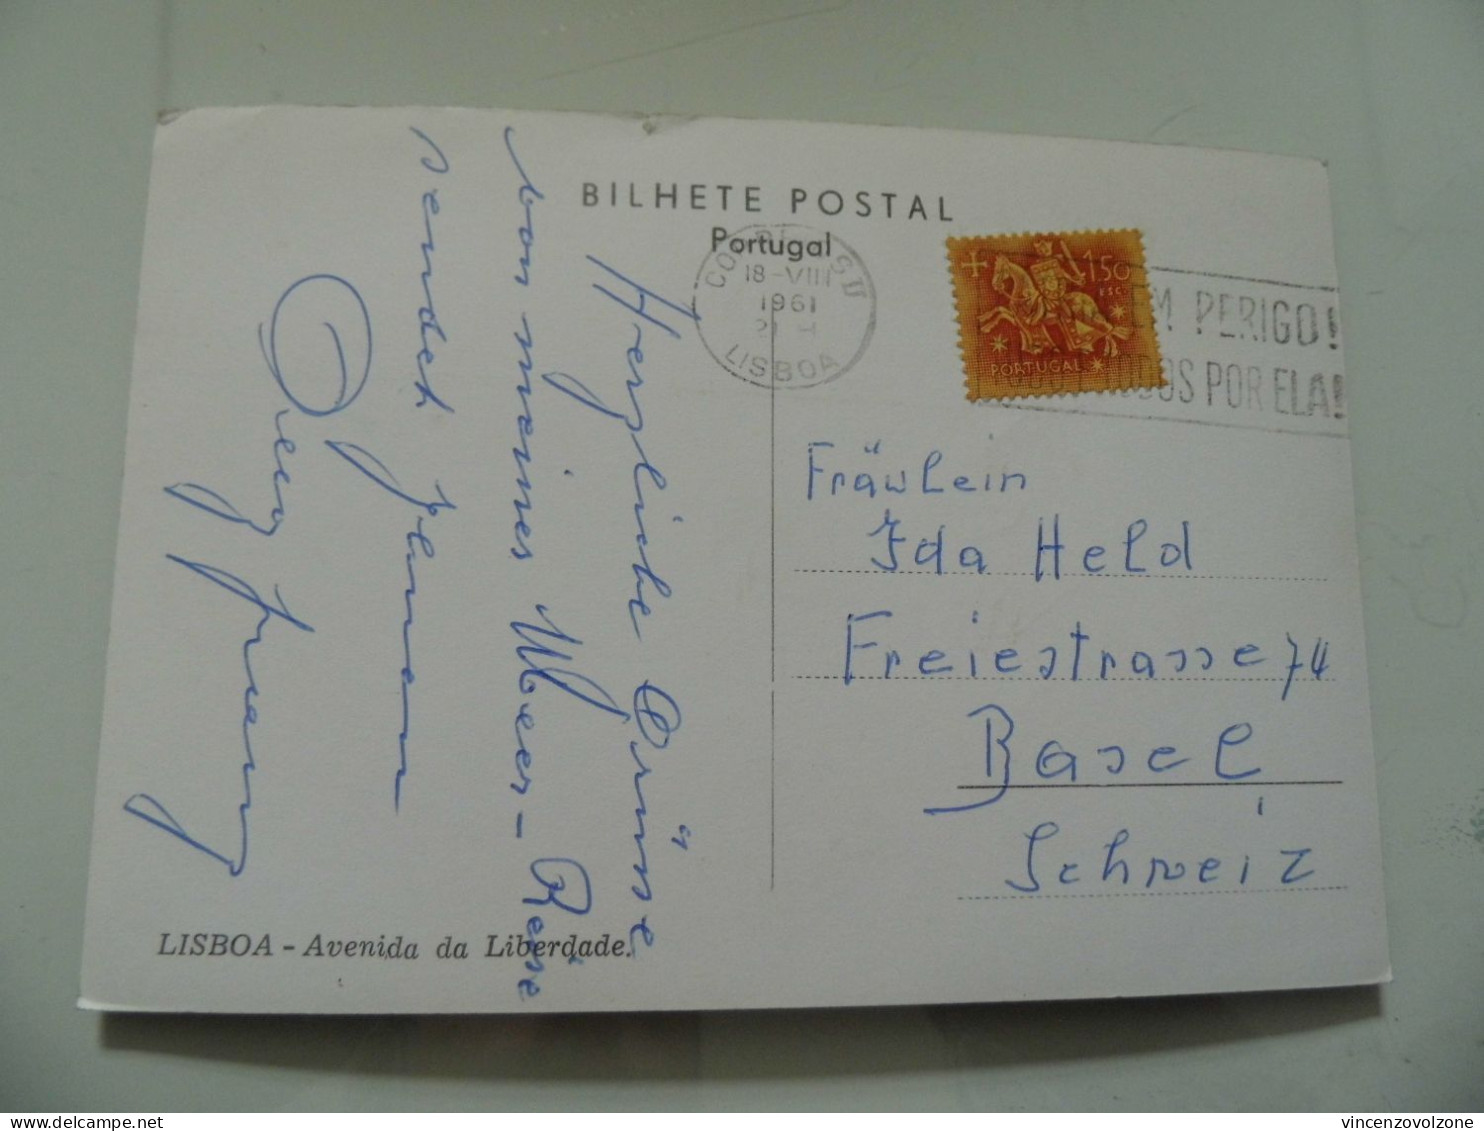 BILHETE POSTAL
Portugal
18-VIII
1961
21 H
LISBOA
1$50
ESC.
PORTUGAL
EM PERIGO!
TODOS POR ELA!
Herzliche Grüsse
von meiner Meer-Reise
sendet Ihnen
Fräulein
Ida Held
Freiestrasse 74
Basel
Schweiz
LISBOA - Avenida da Liberdade.
vincenzovolzone